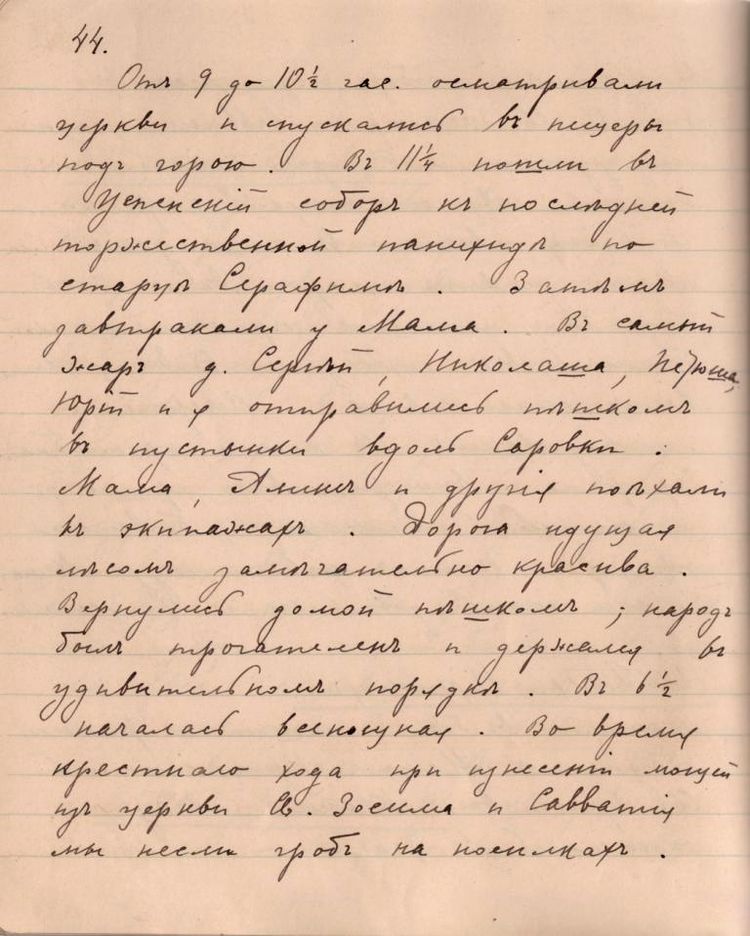 44.
Отъ 9 до 10½ час. осматривали
церкви и спускались въ пещеры
подъ горою. Въ 11¼ пошли въ
Успенскій соборъ къ послѣдней
торжественной панихидѣ по
старцѣ Серафимѣ. Затѣмъ
завтракали у Мама. Въ самый
жаръ д. Сергѣй, Николаша, Петюша,
Юрій и я отправились пѣшкомъ
въ пустынки вдоль Саровки;
Мама, Аликсъ и другія поѣхали
въ экипажахъ. Дорога идущая
лѣсомъ замѣчательно красива.
Вернулись домой пѣшкомъ; народъ
былъ трогателенъ и держался въ
удивительномъ порядкѣ. Въ 6½
началась всенощная. Во время
крестнаго хода при изнесеніи мощей
изъ церкви Св. Зосима и Савватія
мы несли гробъ на носилкахъ.